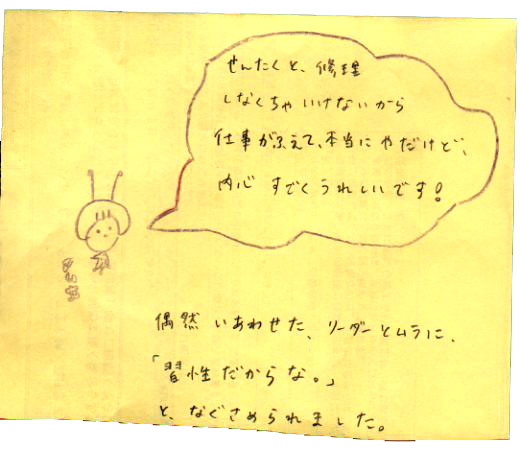 せんたくと、修理
しなくちゃいけないから
仕事がふえて、本当にやだけど、
内心 すごくうれしいです!
偶然 いあわせた、リーダーとムラに、
「習性だからな。」
と、なぐさめられました。